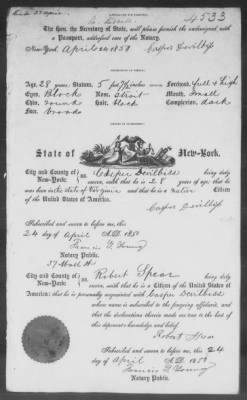 4533
The Hon. the Secretary of State, will please furnish the undersigned with
a Passport, additional cost of Notary.
New-York, April 24 1858 Casper Devilbiss
Age, 28 years Stature, 5 feet 7½ inches Forehead, full & high
Eyes, Black Nose, Short Mouth, Small
Chin, round Hair, black Complexion, dark
Face, broad
State of New-York.
City and County of New-York: ss. Casper Devilbiss being duly
sworn, saith that he is 28 years of age; that he
was born in the state of Virginia and that he is a native Citizen
of the United States of America.
Casper Devilbiss
Subscribed and sworn to before me, this
24 day of April A.D. 1858
Francis F. Young
Notary Public.
37 Wall St
City and County of New-York: ss. Robert Spear being duly
sworn, saith that he is a Citizen of the United States of
America: that he is personally acquainted with Casper Devilbiss
who is the person described in the foregoing affidavit, and
that the declarations therein made are true to the best of
this deponent's knowledge and belief.
Robert Spear
Subscribed and sworn to before me, this 24
day of April A.D. 1858
Francis F. Young
Notary Public.